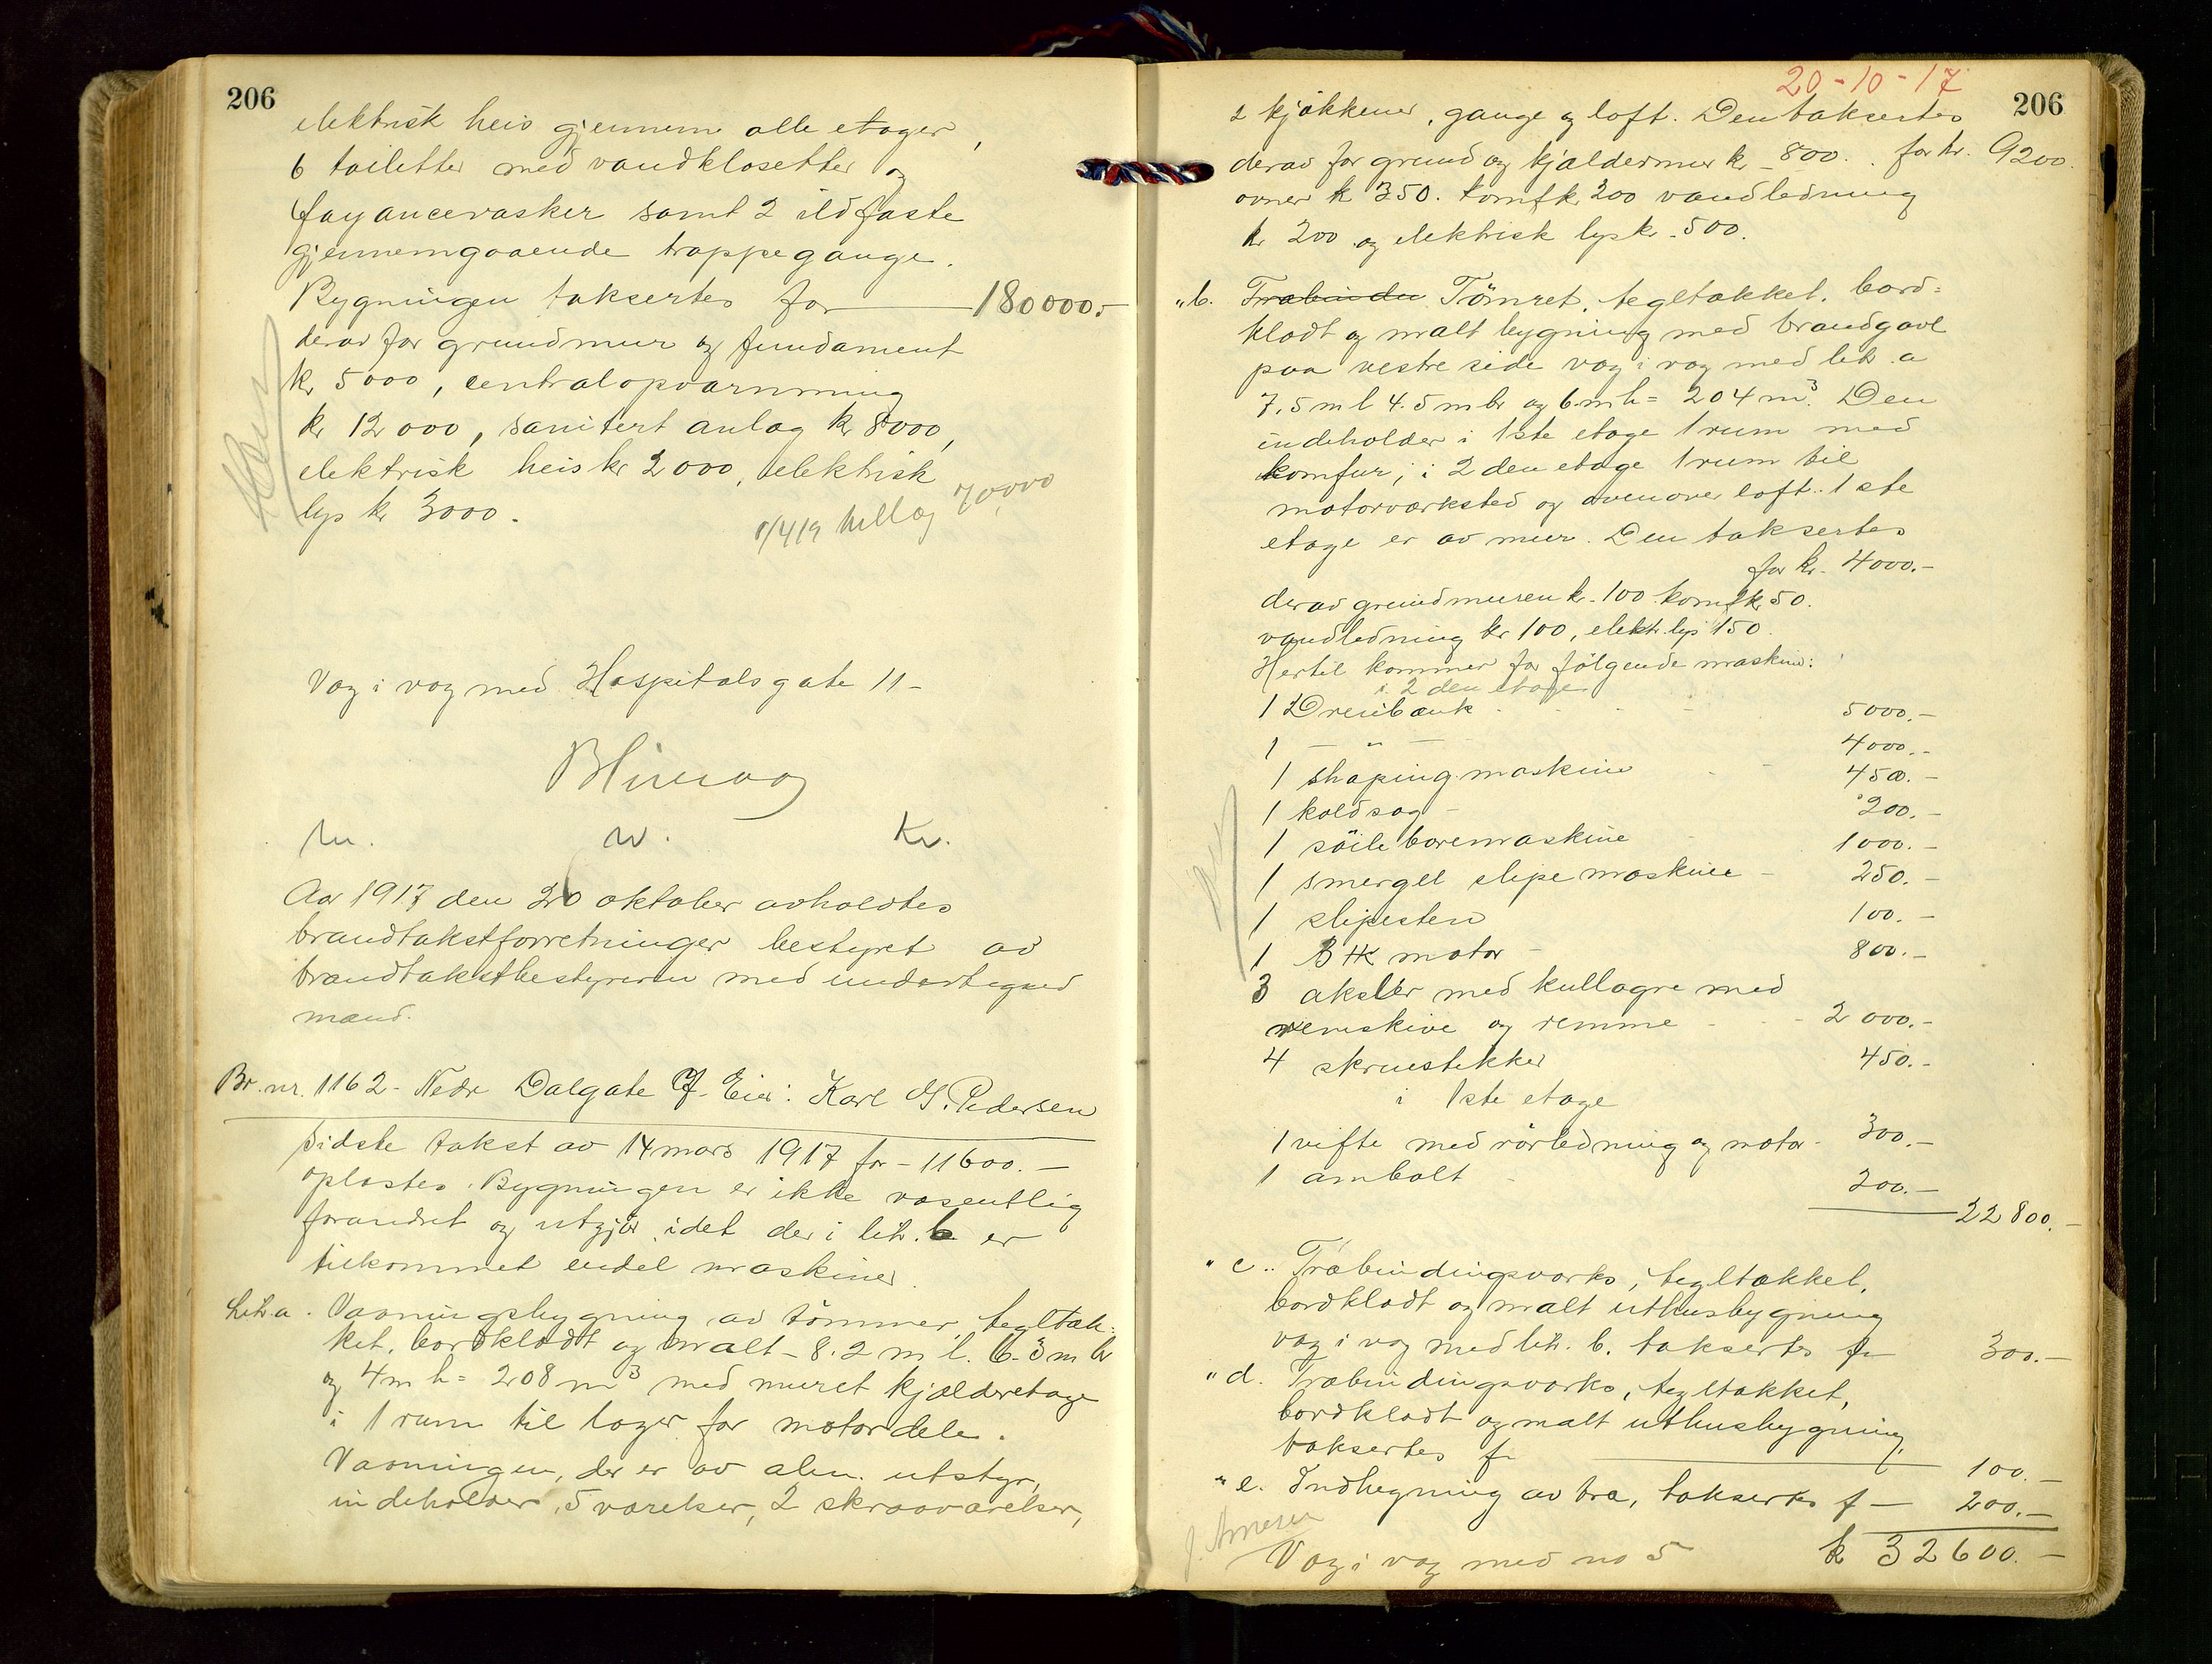 206
elektrisk heis gjennem alle etager,
6 toiletter med vandklosetter og
fayancevasker samt 2 ildfaste
gjennemgaaende trappegange.
Bygningen taksertes for 180000.-
derav for grundmur og fundament
kr 5000, centralopvarmning
kr 12000, sanitert anlæg kr 8000,
elektrisk heis kr 2000, elektrisk
lys kr 3000.
1/4 19 tillæg 70,000
Væg i væg med Hospitalsgate 11 -
Aar 1917 den 20 oktober avholdtes
brandtakstforretninger bestyret av
brandtakstbestyreren med undertegned
mænd.
Br. nr. 1162 - Nedr Dalgate 7. Eier: Karl G. Pedersen
Sidste takst av 14 mars 1917 for - 11600.-
oplæstes. Bygningen er ikke væsentlig
forandret og utgjør, idet der i litr. b er
tilkommet endel maskiner.
Litr. a. Vaaningsbygning av tömmer, tegltæk-
ket, bordklædt og malt - 8.2 m l. 6.3 m br
og 4 m h = 208 m³ med muret kjælderetage
i 1 rum til lager for motordele.
Vaaningen, der er av alm. utstyr,
indeholder 5 værelser, 2 skraaværelser,
20-10-17
206
2 kjøkkener, gange og loft. Den taksertes
for kr. 9200.
derav for grund og kjældermur kr 800.
ovner kr 350. komf kr 200 vandledning
kr 200 og elektrisk lys kr. 500.
" b. Træbinden Tömret, tegltækket, bord-
klædt og malt bygning med brandgavl
paa vestre side væg i væg med litr. a
7,5 m l 4.5 m br og 6 m h = 204 m³. Den
indeholder i 1ste etage 1 rum med
komfur; i 2den etage 1 rum til
motorværksted og ovenover loft. 1ste
etage er av mur. Den taksertes
for kr. 4000.-
derav grundmuren kr. 100 komf kr 50.
vandledning kr 100, elektr. lys 150.
Hertil kommer for følgende maskin:
i 2den etage
1 Dreibænk - 5000.-
1 - " - 4000.-
1 shaping maskine - 4500.-
1 koldsag - 200.-
1 söile boremaskine - 1000.-
1 smergel slipe maskine - 250.-
1 slipesten 100.-
1 3 HK motor - 800.-
3 aksler med kullagre med
remskive og remme - 2000.-
4 skruestikker 450.-
i 1ste etage
1 vifte med rørledning og motor - 300.-
1 ambolt - 200.-
22800.-
" c. Træbindingsværks, tegltækket,
bordklædt og malt uthusbygning
væg i væg med litr. b. taksertes for 300.-
" d. Træbindingsværks, tegltækket,
bordklædt og malt uthusbygning,
taksertes for 100.-
" e. Indhegning av træ, taksertes f - 200.-
Væg i væg med no 5 kr 32600.-